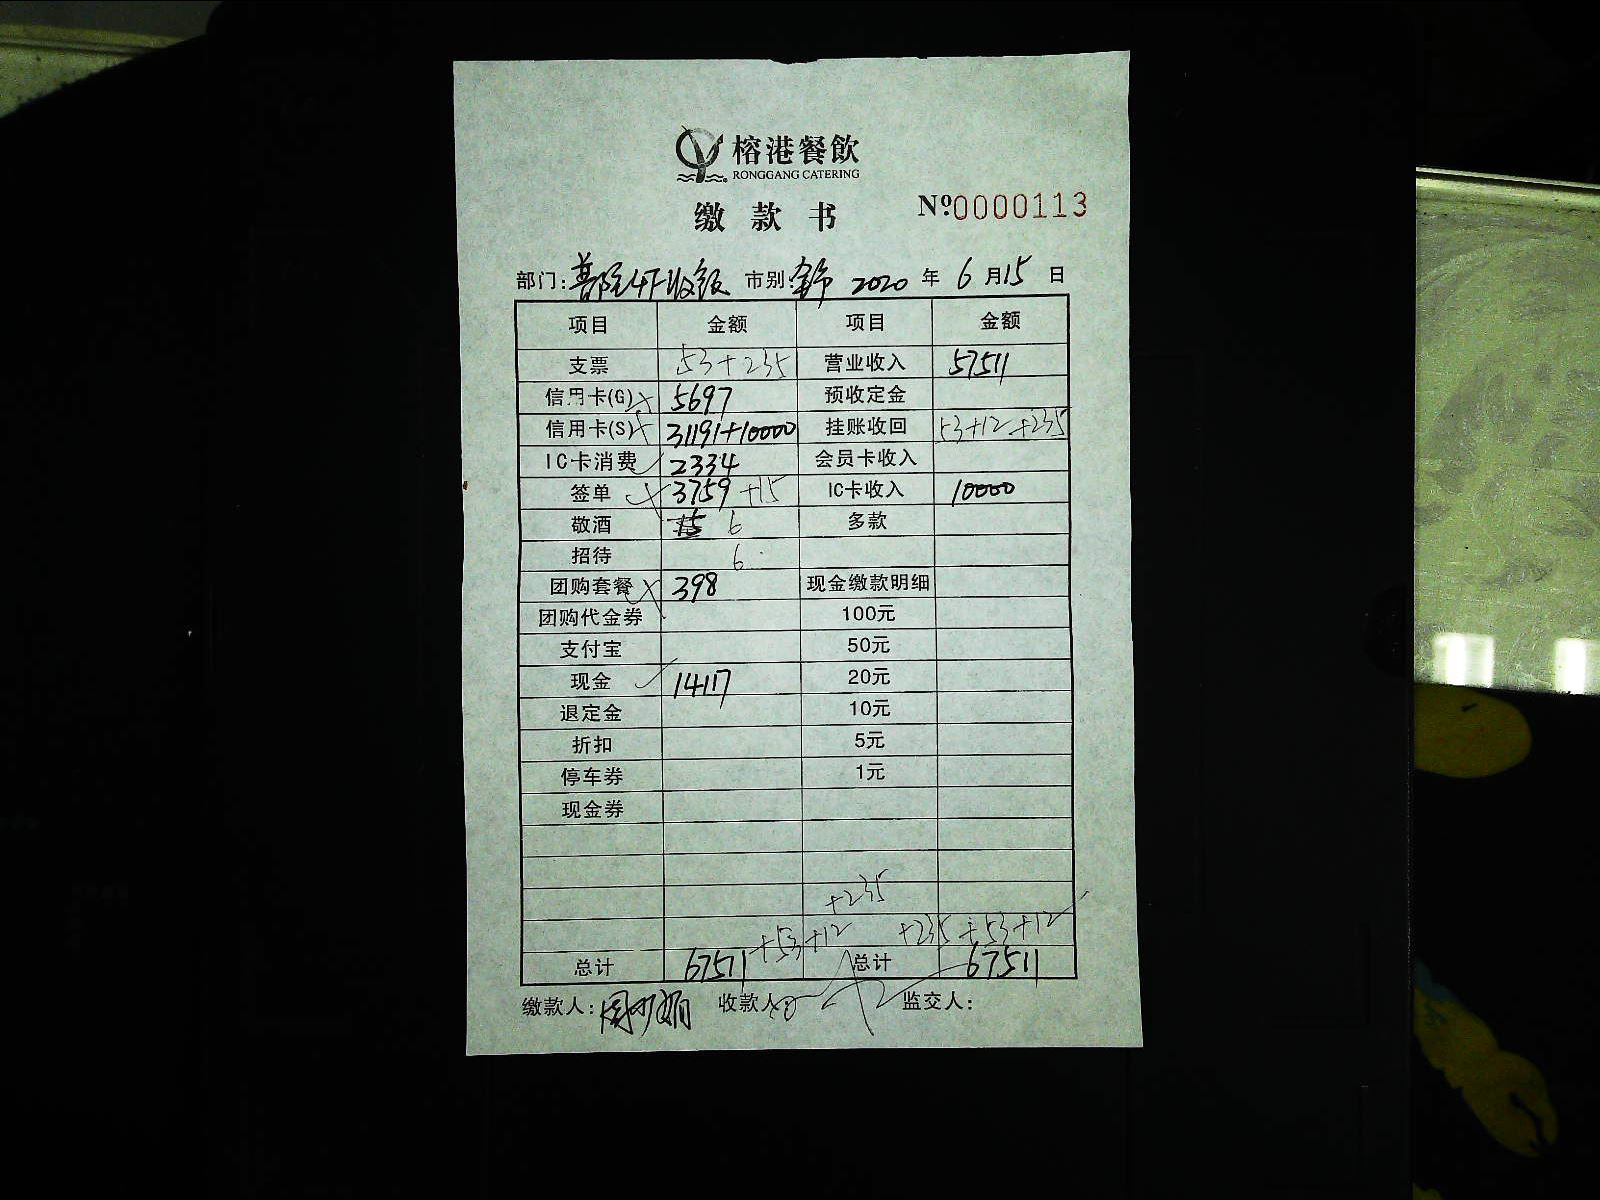 榕港餐飲
RONGGANG CATERING
缴款书 №0000113
部门: 4F收银 市别: 2020 年 6 月 15 日
项目 金额 项目 金额
支票 53+235 营业收入 57511
信用卡(G) 5697 预收定金
信用卡(S) 31191+10000 挂账收回 53+12+235
IC卡消费 2334 会员卡收入
签单 3759 +15 IC卡收入 10000
敬酒 6 多款
招待 6
团购套餐 398 现金缴款明细
团购代金券 100元
支付宝 50元
现金 14117 20元
退定金 10元
折扣 5元
停车券 1元
现金券
+235
+53+12 +235+53+12
总计 67511 总计 67511
缴款人: 收款人: 监交人: